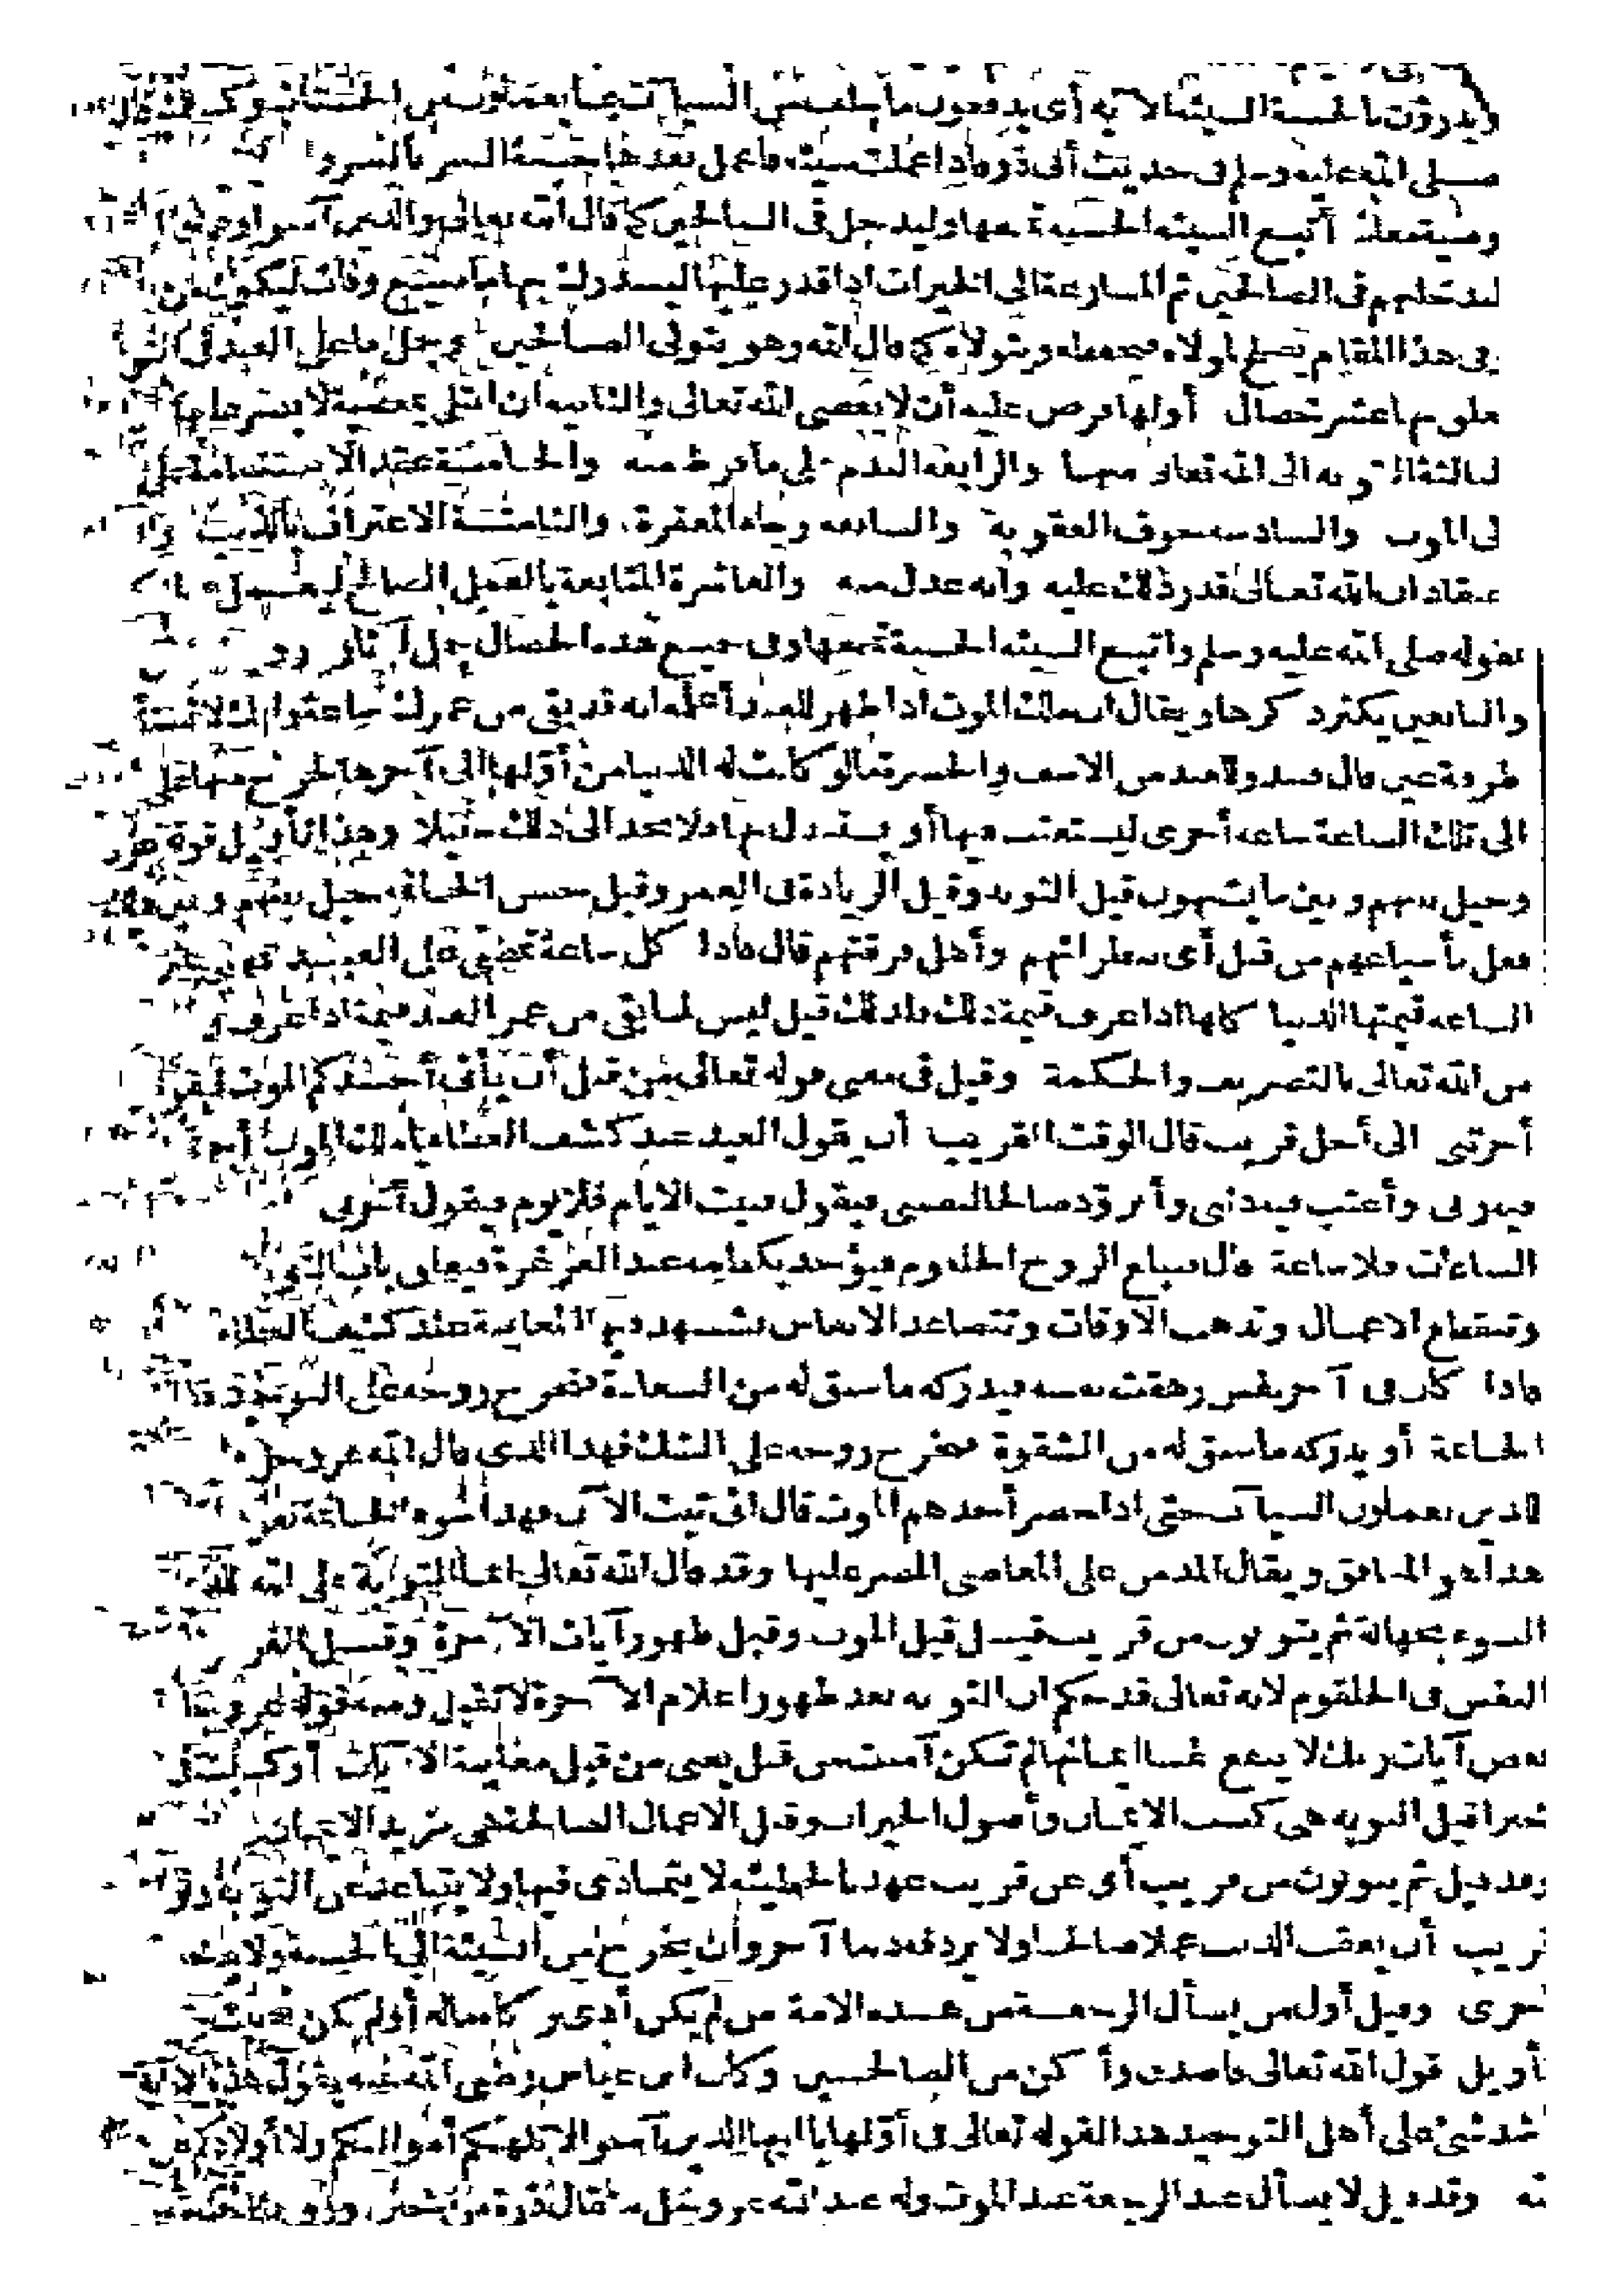 ويدرؤن بالحسنة السيئة الآية أى يدفعون ما سلف من السيآت بما يعملون من الحسنات
صلى الله عليه وسلم فى حديث أبى ذر فاذا عملت سيئة فاعمل بعدها حسنة السر بالسر وا
وصية معاذ أتبع السيئة الحسنة تمحها وليدخل فى الصالحين كما قال الله تعالى والذين آمنوا
لندخلنهم فى الصالحين ثم المسارعة الى الخيرات اذا قدر عليها ليستدرك بها ما ضيع وفات ليكون من
فى هذا المقام يصلح لمولاه فيحفظه ويتولاه كما قال الله وهو يتولى الصالحين وجمل ما على العبد فى
علوم ما عشر خصال أولها فرض عليه أن لا يعصى الله تعالى والثانية ان ابتلى بمعصية لا يصر عليها
الثالثة التوبة الى الله تعالى منها والرابعة الندم على ما فرط منه والخامسة عقد الاستقامة على
الى الموت والسادسة خوف العقوبة والسابعة رجاء المغفرة والثامنة الاعتراف بالذنب
عتقاد ان الله تعالى قدر ذلك عليه وانه عدل منه والعاشرة المتابعة بالعمل الصالح
لقوله صلى الله عليه وسلم واتبع السيئة الحسنة تمحها وفى جميع هذه الخصال جمل آثار
والتابعين يكثر ذكرها ويقال ان ملك الموت اذا ظهر للعبد أعلمه انه قد بقى من عمرك ساعة وانك لا تستأخر
طرفة عين قال فيبدو للعبد من الاسف والحسرة ما لو كانت له الدنيا من أولها الى آخرها لخرج منها على
الى تلك الساعة ساعة أخرى ليستعتب فيها أو يستبدل بها فلا يجد الى ذلك سبيلا وهذا تأويل قوله
وحيل بينهم وبين ما يشتهون قيل التوبة وقيل الزيادة فى العمر وقيل حسن الخاتمة حيل بينهم وبين
فعل بأشياعهم من قبل أى بنظرائهم وأهل فرقتهم قال فاذا كل ساعة تمضى على العبد فهى
الساعة قيمتها الدنيا كلها اذا عرف قيمة ذلك فلذلك قيل ليس لما بقى من عمر العبد قيمة اذا عرف
من الله تعالى بالتصريف والحكمة وقيل فى معنى قوله تعالى من قبل أن يأتى أحدكم الموت فيقول
أخرتنى الى أجل قريب قال الوقت القريب أن يقول العبد عند كشف الغطاء يا ملك الموت
فيه ربى وأعتب فيه ذنبى وأتزود صالحا لنفسى فيقول فنيت الايام فلا يوم فيقول أخرنى
الساعات فلا ساعة قال فتبلغ الروح الحلقوم فيؤخذ بكظمه عند الغرغرة فيغلق باب التوبة
وتنقطع الاعمال وتذهب الاوقات وتتصاعد الانفاس يشهد فيها المعاينة عند كشف الغطاء
فاذا كان فى آخر نفس زهقت نفسه فيدركه ما سبق له من السعادة فتخرج روحه على التوحيد
الخاتمة أو يدركه ما سبق له من الشقوة فتخرج روحه على الشك فهذا الذى قال الله عز وجل
للذين يعملون السيآت حتى اذا حضر أحدهم الموت قال انى تبت الآن فهذا سوء الخاتمة
هذا هو المنافق ويقال المدمن على المعاصى المصر عليها وقد قال الله تعالى انما التوبة على الله للذين
السوء بجهالة ثم يتوبون من قريب قيل قبل الموت وقبل ظهور آيات الآخرة وقبل الغر
النفس فى الحلقوم لانه تعالى قد حكم ان التوبة بعد ظهور اعلام الآخرة لا تقبل ومنه قوله عز وجل
بعض آيات ربك لا ينفع نفسا ايمانها لم تكن آمنت من قبل يعنى من قبل معاينة الآيات أو كسبت فى
خيرا قيل التوبة هى كسب الايمان وأصول الخيرات وقيل الاعمال الصالحة هى مزيد الايمان
وقد قيل ثم يتوبون من قريب أى عن قريب عهد بالخطيئة لا يتمادى فيها ولا يتباعد عن التوبة
قريب أن يعقب الذنب عملا صالحا ولا يردفه ذنبا آخر وأن يخرج من السيئة الى الحسنة ولا
أخرى وقيل أول من يسأل الرجعة من هذه الامة من لم يكن أدى زكاة ماله أو لم يكن
تأويل قول الله تعالى فاصدق وأكن من الصالحين وكان ابن عباس رضى الله عنه يقول هذه الآية
أشد شئ على أهل التوحيد هذا لقوله تعالى فى أولها يا أيها الذين آمنوا لا تلهكم أموالكم ولا أولادكم
وقد قيل لا يسأل عبد الرجعة عند الموت وله عند الله عز وجل مثقال ذرة من